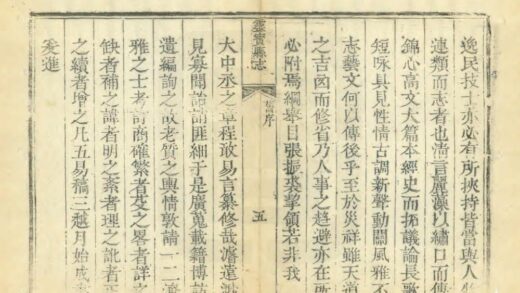 逸民技士亦必有所挾持皆當與人物
連類而志者也淸言麗藻以繡口而傳
錦心高文大篇本經史而拓議論長歌
短咏具見性情古調新聲動關風雅不
志藝文何以傳後乎至於災祥雖天道
之吉凶而修省乃人事之趨避亦在所
必附焉綱舉目張振裘挈領若非我
靈寶縣志
舊序
五
大中丞之章程敢易言纂修哉濬遠
見寡聞諮諏匪細于是廣蒐載籍博訪
遺編詢之故老質之輿情敦請一二淹
雅之士考訂商確繁者芟之畧者詳之
缺者補之諱者明之紊者理之訛者正
之續者增之凡五易稿三越月始成
進